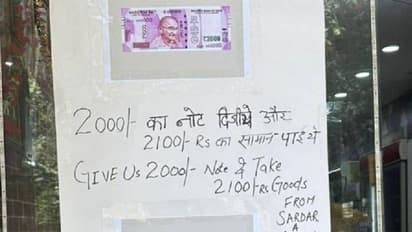 2000/- का नोट दिजीये और
2100/- Rs का सामान पाइये
GIVE US 2000/- Note & Take
2100/- Rs Goods
FROM
SARDAR
A